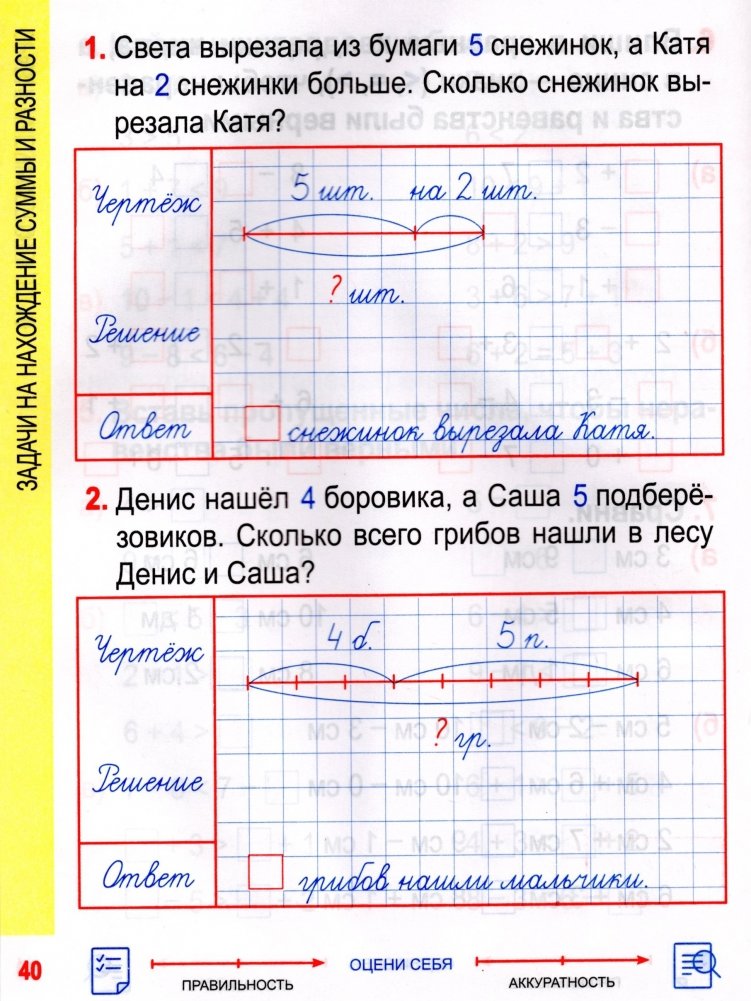 ЗАДАЧИ НА НАХОЖДЕНИЕ СУММЫ И РАЗНОСТИ
1. Света вырезала из бумаги 5 снежинок, а Катя
на 2 снежинки больше. Сколько снежинок вы-
резала Катя?
Чертёж
5 шт. на 2 шт.
? шт.
Решение
Ответ
снежинок вырезала Катя.
2. Денис нашёл 4 боровика, а Саша 5 подберё-
зовиков. Сколько всего грибов нашли в лесу
Денис и Саша?
Чертёж
4 б. 5 п.
? гр.
Решение
Ответ
грибов нашли мальчики.
40
ПРАВИЛЬНОСТЬ
ОЦЕНИ СЕБЯ
АККУРАТНОСТЬ